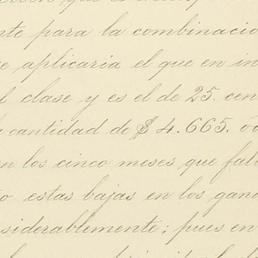 nte para la combinacio
e aplicaria el que en in
l clase y es el de 25. cen
a cantidad de $ 4.665. oo
en los cinco meses que fal
o estas bajas en los gana
nsiderablemente; pues en